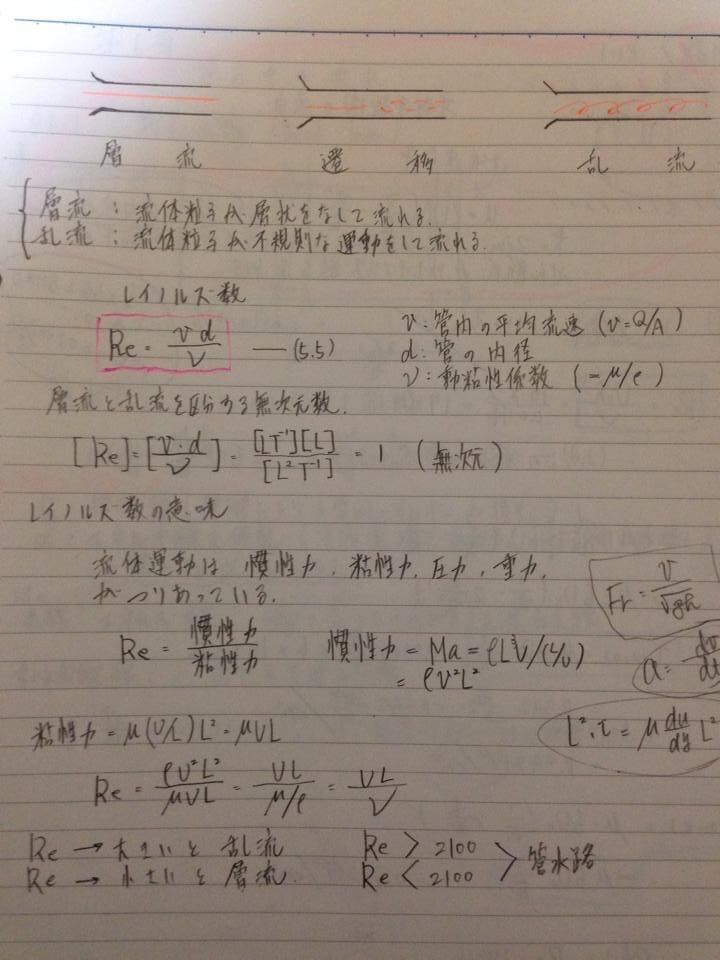 層流 遷移 乱流
層流：流体粒子が層状をなして流れる.
乱流：流体粒子が不規則な運動をして流れる.
レイノルズ数
Re = vd/ν —(5.5)
v：管内の平均流速 (v=Q/A)
d：管の内径
ν：動粘性係数 (=μ/ρ)
層流と乱流を区分する無次元数.
[Re]=[v・d/ν]=[LT⁻¹][L]/[L²T⁻¹]=1 (無次元)
レイノルズ数の意味
流体運動は 慣性力, 粘性力, 圧力, 重力,
がつりあっている.
Fr=v/√gh
Re=慣性力/粘性力 慣性力=Ma=ρL³v/(L/v)
=ρv²L²
a=dv/dt
粘性力=μ(v/L)L²=μvL
L²・τ=μ du/dy L²
Re=ρv²L²/μvL=vL/μ/ρ=vL/ν
Re → 大きいと乱流 Re > 2100
Re → 小さいと層流. Re < 2100
> 管水路